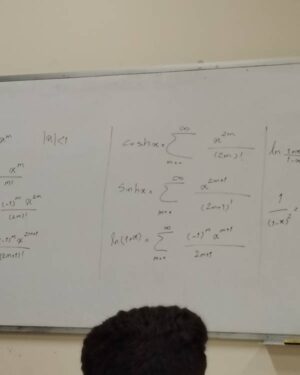 x^m |x|<1
x^m/m!
(-1)^m x^2m/(2m)!
(-1)^m x^2m+1/(2m+1)!
coshx = ∑_{m=0}^{∞} x^2m/(2m)!
sinhx = ∑_{m=0}^{∞} x^2m+1/(2m+1)!
ln(1+x) = ∑_{m=0}^{∞} (-1)^m x^m+1/2m+1
ln
1/(1-x)^2 =